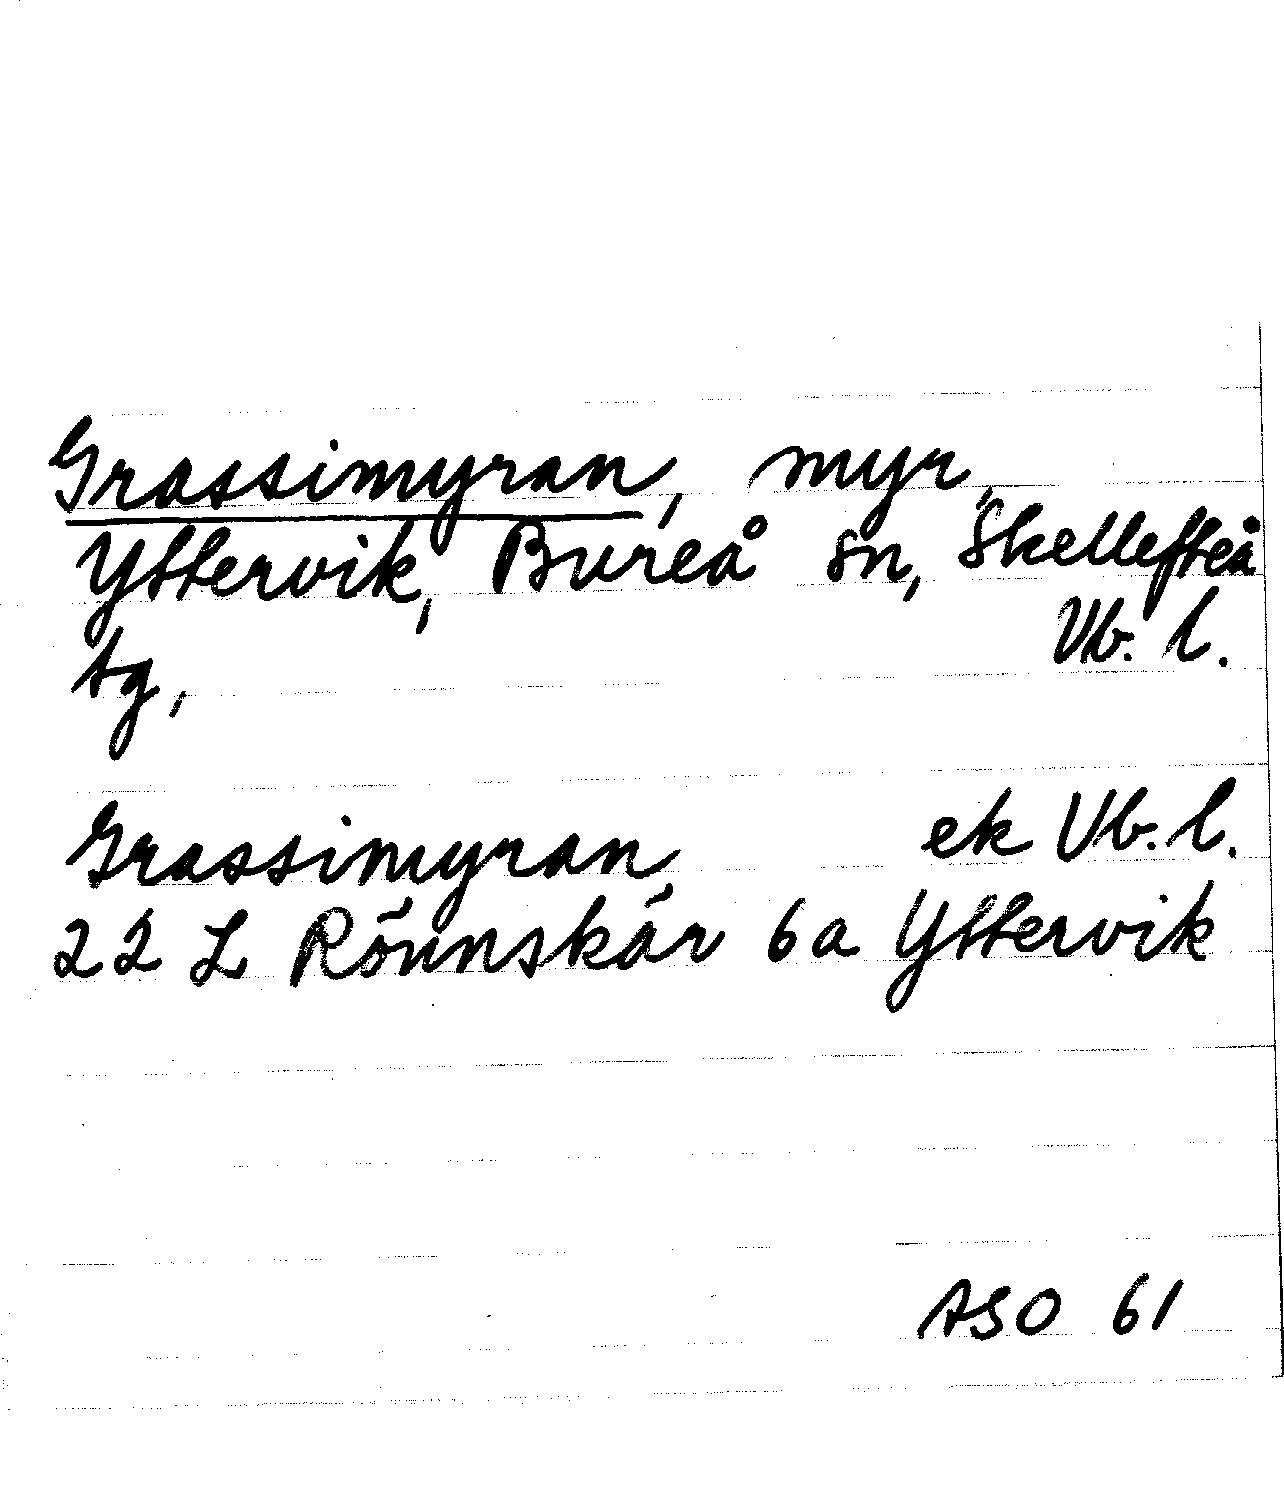 Grassimyran, myr,
Yttervik, Bureå sn, Skellefteå
tg, Vb. l.
Grassimyran, ek Vb. l.
22 L Rönnskär 6a Yttervik
ASO 61